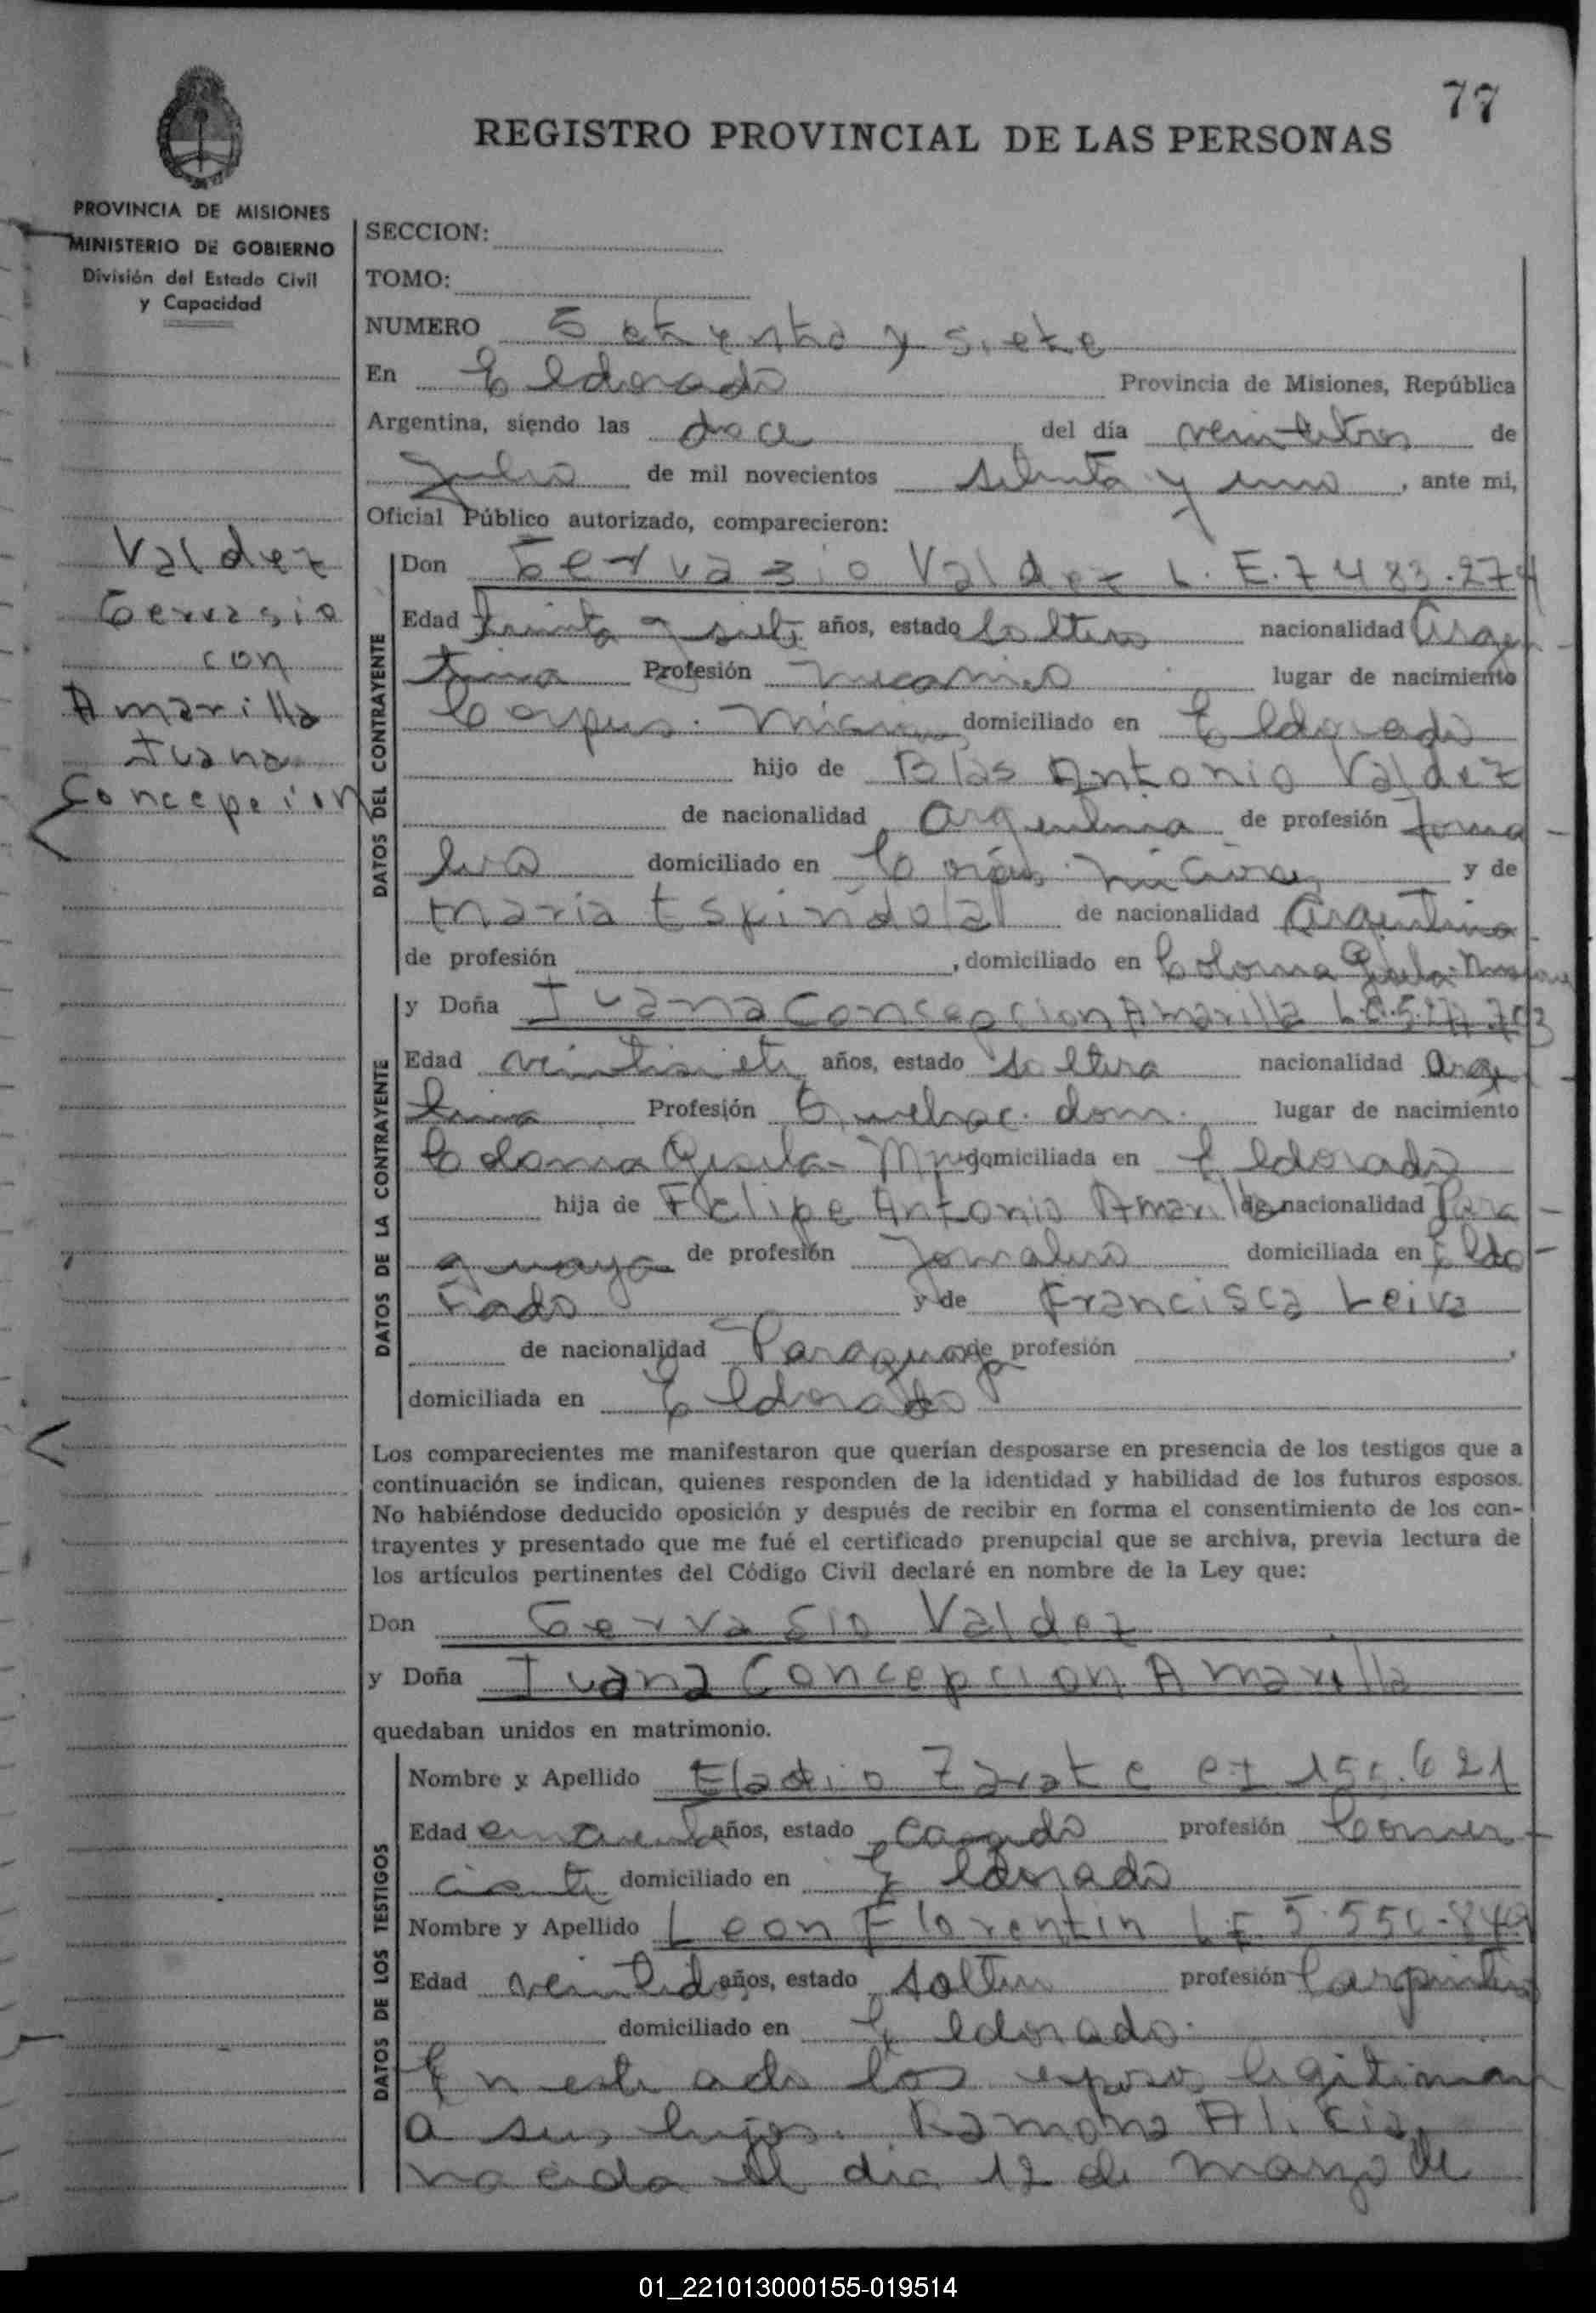 77
REGISTRO PROVINCIAL DE LAS PERSONAS
PROVINCIA DE MISIONES
MINISTERIO DE GOBIERNO
División del Estado Civil
y Capacidad
SECCION:
TOMO:
NUMERO Setenta y siete
En Eldorado Provincia de Misiones, República
Argentina, siendo las doce del día veintitres de
Julio de mil novecientos setenta y uno, ante mi,
Oficial Público autorizado, comparecieron:
Valdez
Gervasio
con
Amarilla
Juana
Concepcion
DATOS DEL CONTRAYENTE
Don Gervasio Valdez L.E. 7483.274
Edad treinta y siete años, estado soltero nacionalidad Argen-
tina Profesión mecanico lugar de nacimiento
Corpus. domiciliado en Eldorado
hijo de Blas Antonio Valdez
de nacionalidad argentina de profesión Jorna-
lero domiciliado en Misiones y de
Maria Espindola de nacionalidad Argentina
de profesión , domiciliado en Colonia Gisela-
DATOS DE LA CONTRAYENTE
y Doña Juana Concepcion Amarilla L.C.
Edad veintisiete años, estado soltera nacionalidad Argen-
tina Profesión Quehac. dom. lugar de nacimiento
Colonia Gisela- domiciliada en Eldorado
hija de Felipe Antonio Amarilla de nacionalidad Para-
guaya de profesión Jornalero domiciliada en Eldo-
rado y de Francisca Leiva
de nacionalidad Paraguaya de profesión ,
domiciliada en Eldorado
Los comparecientes me manifestaron que querían desposarse en presencia de los testigos que a
continuación se indican, quienes responden de la identidad y habilidad de los futuros esposos.
No habiéndose deducido oposición y después de recibir en forma el consentimiento de los con-
trayentes y presentado que me fué el certificado prenupcial que se archiva, previa lectura de
los artículos pertinentes del Código Civil declaré en nombre de la Ley que:
Don Gervasio Valdez
y Doña Juana Concepcion Amarilla
quedaban unidos en matrimonio.
DATOS DE LOS TESTIGOS
Nombre y Apellido Eladio Zarate
Edad años, estado casado profesión Comer-
ciante domiciliado en Eldorado
Nombre y Apellido Leon Florentin L.E. 5.550.849
Edad veintidos años, estado soltero profesión Carpintero
domiciliado en Eldorado.
En este acto los esposos legitiman
a sus hijos. Ramona Alicia,
nacida el dia 12 de marzo de
01_221013000155-019514